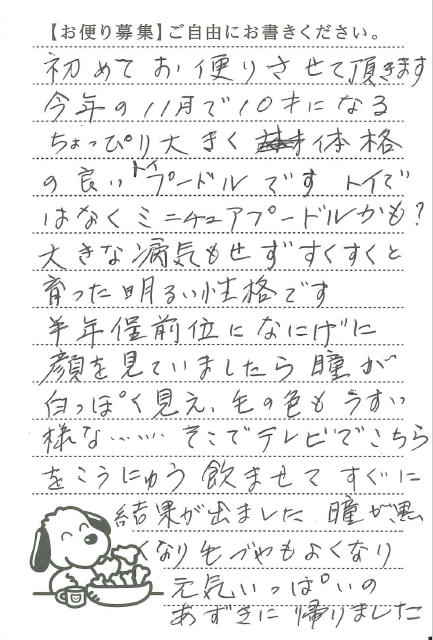 【お便り募集】ご自由にお書きください。
初めてお便りさせて頂きます
今年の11月で10才になる
ちょっぴり大きく体格
の良いトイプードルです トイで
はなくミニチュアプードルかも?
大きな病気もせずすくすくと
育った明るい性格です
半年程前位になにげに
顔を見ていましたら瞳が
白っぽく見え、毛の色もうすい
様な…… そこでテレビでこちら
をこうにゅう飲ませてすぐに
結果が出ました 瞳が黒
くなり毛づやもよくなり
元気いっぱいの
あずきに帰りました